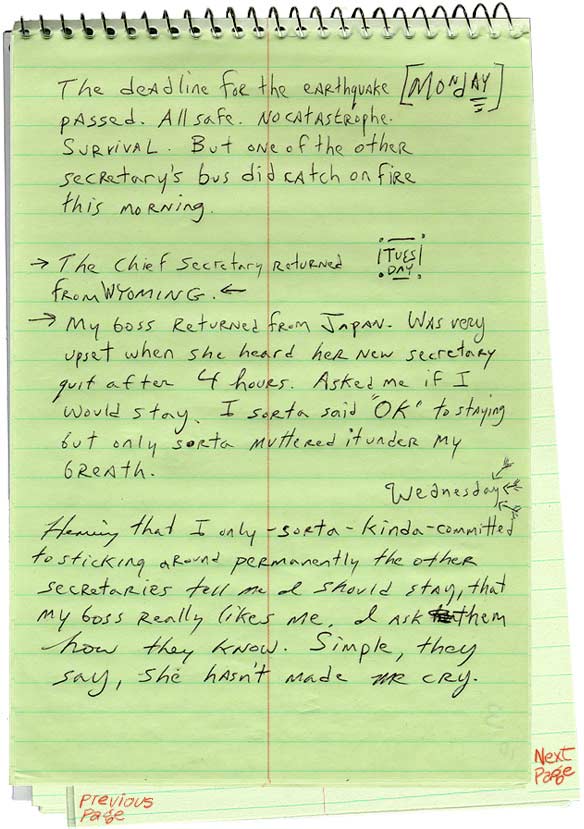 The deadline for the earthquake [Monday]
passed. All safe. No catastrophe.
Survival. But one of the other
secretary's bus did catch on fire
this morning.
→ The chief secretary returned
from WYOMING. ←
TUES
DAY
→ My boss returned from Japan. Was very
upset when she heard her new secretary
quit after 4 hours. Asked me if I
would stay. I sorta said "OK" to staying
but only sorta muttered it under my
breath.
Wednesday
Hearing that I only-sorta-kinda-committed
to sticking around permanently the other
secretaries tell me I should stay, that
my boss really likes me. I ask them
how they know. Simple, they
say, she hasn't made me cry.
Next
Page
Previous
Page